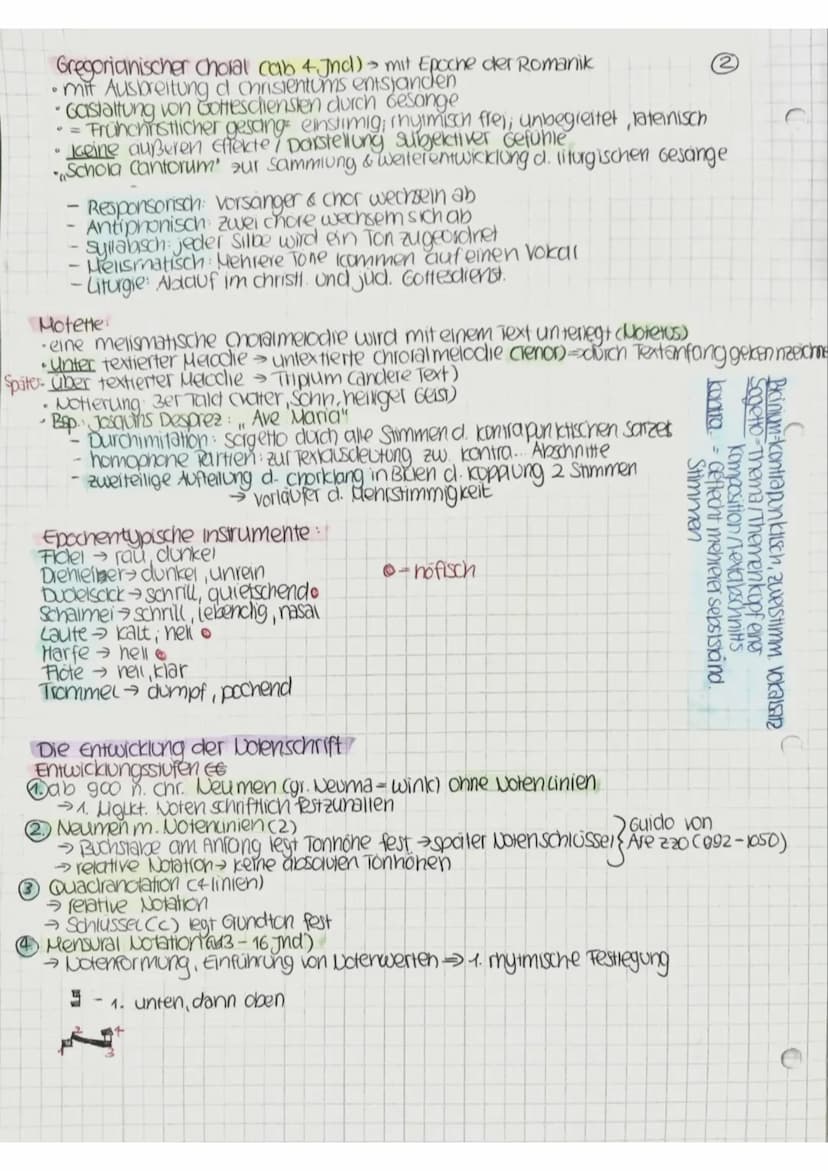 Gregorianischer Choral (ab 4. Jhd) → mit Epoche der Romanik
②
• mit Ausbreitung d Christentums entstanden
• Gastaltung von Gottesdiensten durch Gesänge
• = Frühchristlicher gesang= einstimig; rhytmisch frei, unbegleitet, lateinisch
• keine äußeren Effekte / Darstellung subjektiver Gefühle
• „Schola Cantorum" zur Sammlung & Weiterentwicklung d. liturgischen Gesänge
- Responsorisch: Vorsänger & Chor wechseln ab
- Antiphonisch: zwei Chöre wechseln sich ab
- Syllabisch: jeder Silbe wird ein Ton zugeordnet
- Melismatisch: Mehrere Töne kommen auf einen Vokal
- Liturgie: Ablauf im christl. und jüd. Gottesdienst.
Motette:
• eine melismatische Choralmelodie wird mit einem Text unterlegt (Motetus)
• Unter textierter Melodie → untextierte Chroralmelodie (Tenor) ⇒ durch Textanfang gekennzeichne
Später: über textierter Melodie → Triplum (andere Text)
• Notierung: 3er Takt (Vater, Sohn, heiliger Geist)
• Bsp.: Josquins Desprez: „Ave Maria"
- Durchimitation: sorgetto durch alle Stimmen d. kontrapunktischen Satzes
- homophone Partien: zur Textausdeutung zw. kontra... Abschnitte
- zweiteilige Aufteilung d. Chorklang in d. Kopplung 2 Stimmen
→ Vorläufer d. Mehrstimmigkeit
Bicinium- kontrapunktisch zweistimm. Vokalsatz
Sogetto- Thema/Themenkopf eine
Komposition / Textabschnitts
kontra. = Geflecht mehrerer selbstständ.
Stimmen
Epochentypische Instrumente:
Fidel → rau, dunkel
Drehleiher → dunkel, unrein
Dudelsack → schrill, quietschend
- höfisch
Schalmei → schrill, lebendig, nasal
Laute → kalt, hell
Harfe → hell
Flöte → hell, klar
Trommel → dumpf, pochend
Die Entwicklung der Notenschrift
Entwicklungsstufen
1. ab 900 n. Chr. Neumen (gr. Neuma = Wink) ohne Notenlinien
→ 1. Möglkt. Noten schriftlich festzuhalten
2. Neumen m. Notenlinien (2)
→ Buchstabe am Anfang legt Tonhöhe fest → später Notenschlüssel } Guido von Arezzo (992-1050)
→ relative Notation → keine absoluten Tonhöhen
3 Quadranotation (4 linien)
→ relative Notation
→ Schlüssel (c) legt Grundton fest
4. Mensural Notation (ad 13 - 16 Jhd)
→ Notenformung, Einführung von Notenwerten ⇒ 1. rhytmische Festlegung
- 1. unten, dann oben
1 2 3 4